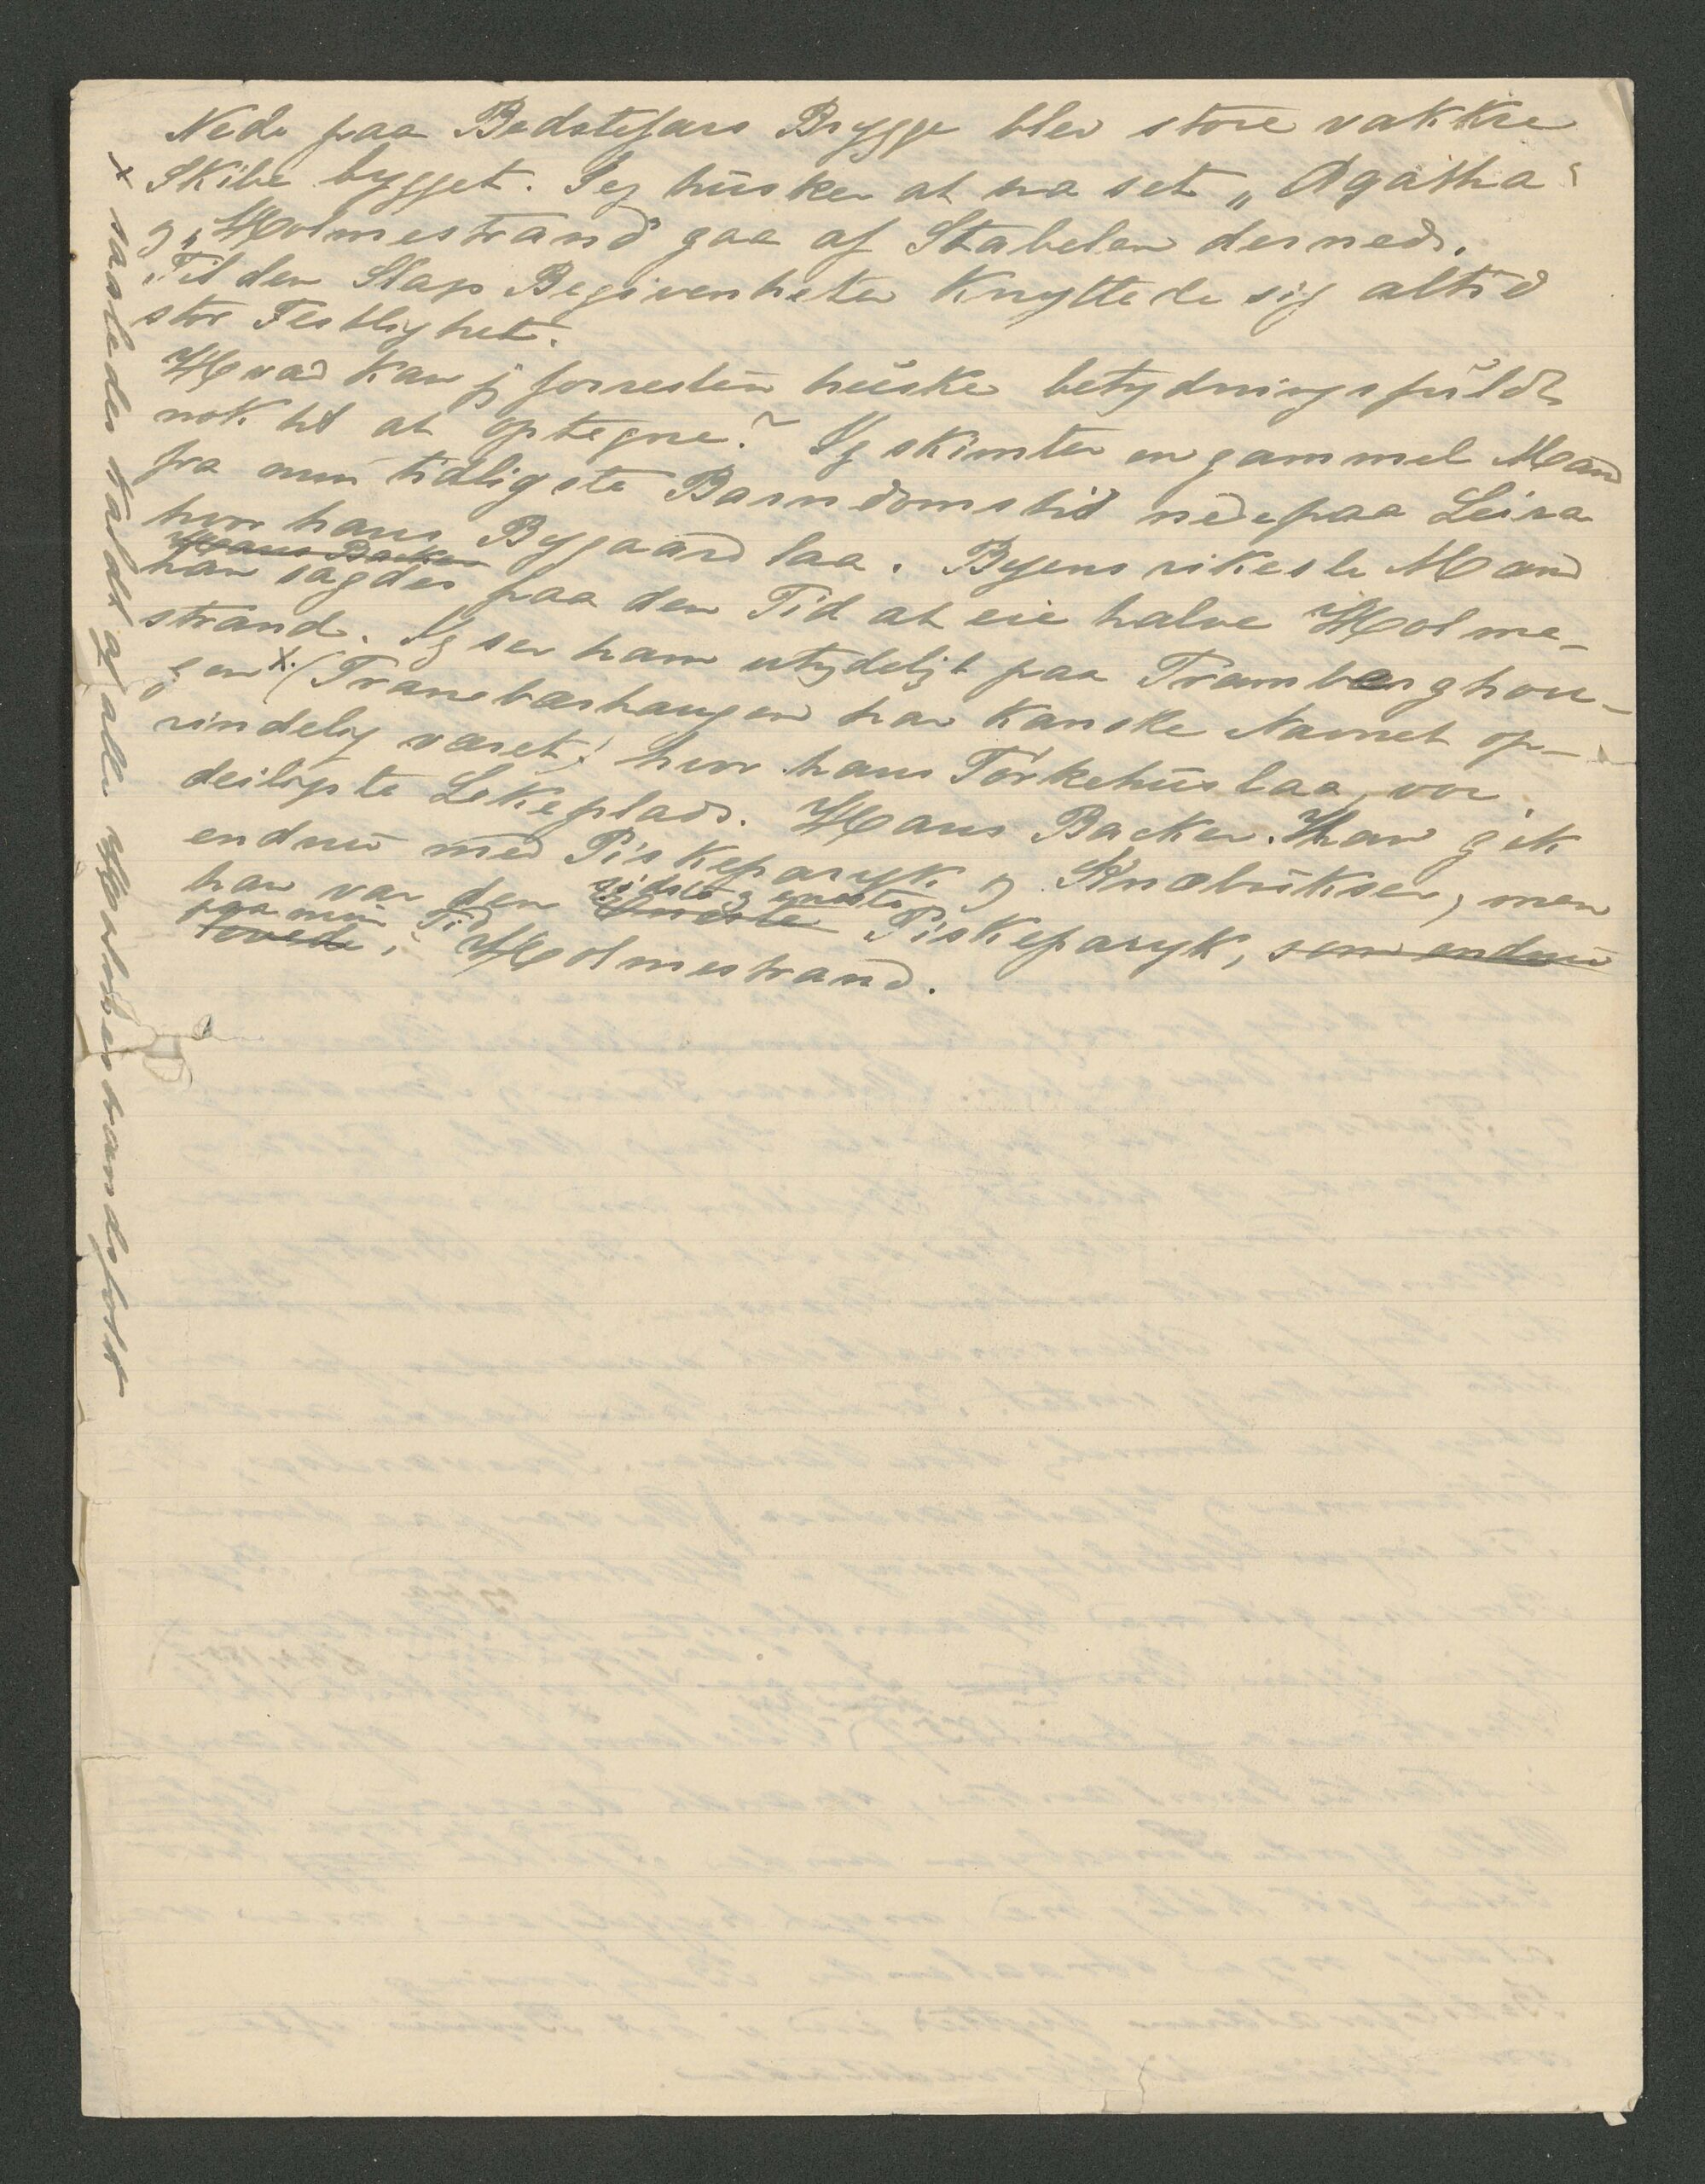 Nede paa Bedstefars Brygge blev store vakkre
Skibe bygget. Jeg husker at ha set „Agatha"
og „Holmestrand" gaa af Stabelen dernede.
Til den Slags Begivenheter knyttede sig altid
stor Festlighet.
Hvad kan jeg forresten huske betydningsfuldt
nok til at optegne? Jeg skimter en gammel Mand
fra min tidligste Barndomstid nede paa Leira
hvor hans Bygaard laa. Byens rikeste Mand
Hans Backer
han sagdes paa den Tid at eie halve Holme-
strand. Jeg ser ham utydeligt paa Tramberghau-
gen x. (Tranebærhaugen har kanske Navnet op-
rindelig været) hvor hans Tørkehus laa, vor
deiligste Lekeplads. Hans Backer. Han gik
endnu med Piskeparyk og Knæbukser, men
sidste og eneste
han var den Piskeparyk, som endnu
paa min Tid
levede i Holmestrand.
x saaledes kaldt af alle Holmestrandsfolk